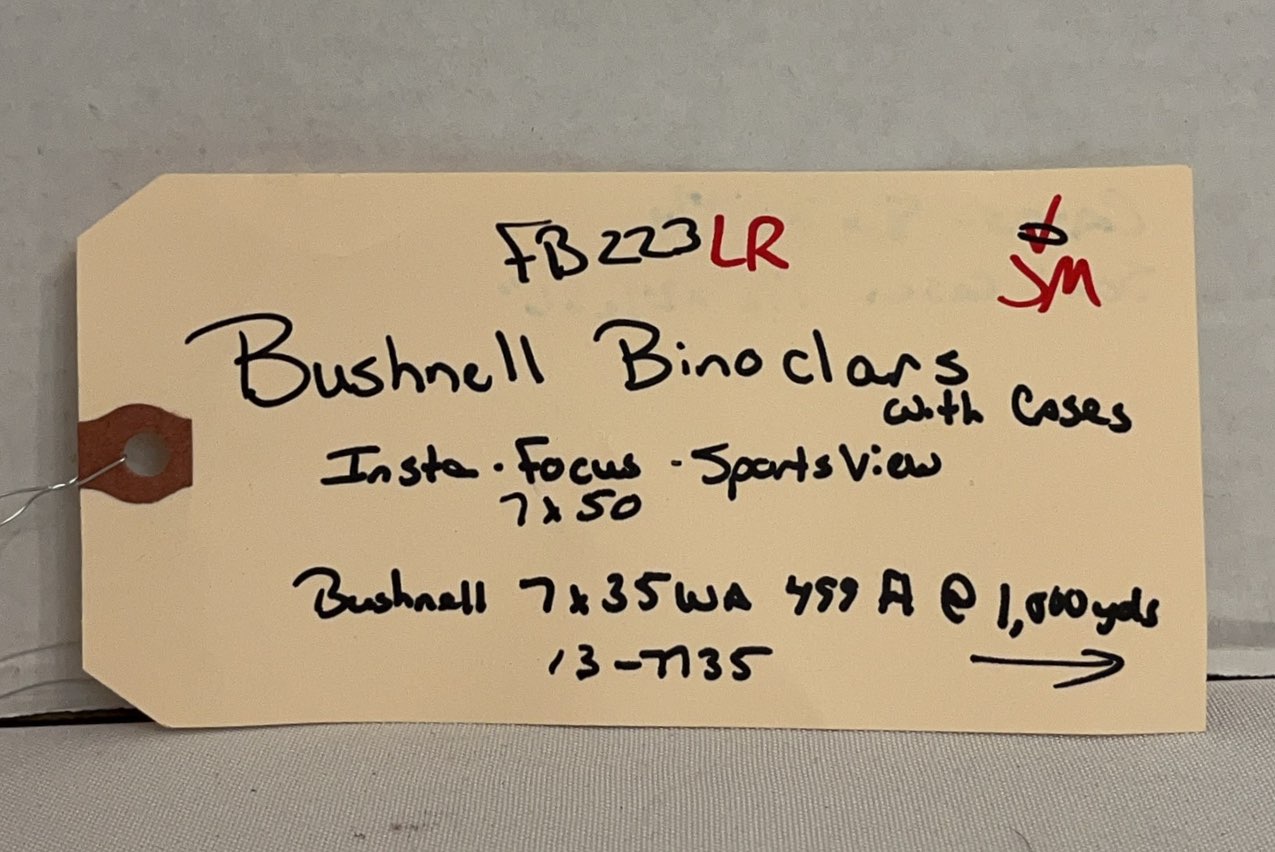 FB223LR
JM
Bushnell Binoclars
with Cases
Insta · Focus · Sports View
7x50
Bushnell 7x35WA 499 A @ 1,000yds
13-7135